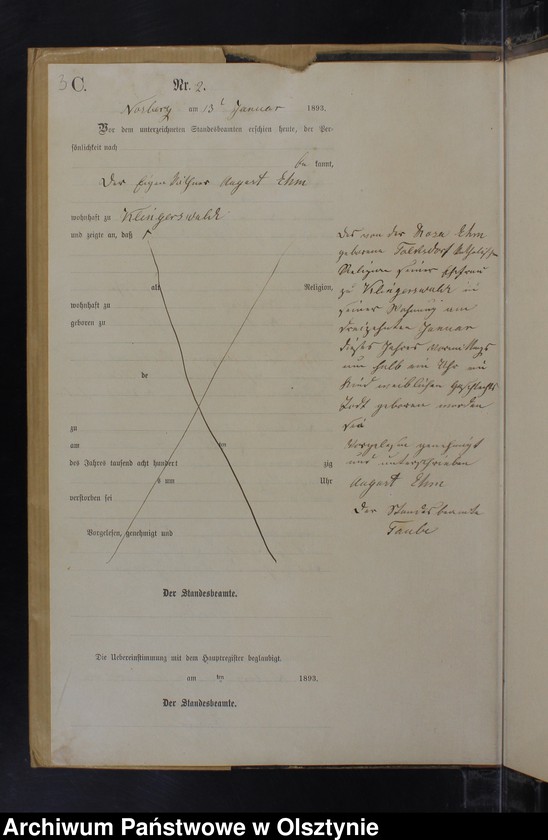 3 C. Nr. 2.
Nosberg am 13t Januar 1893.
Vor dem unterzeichneten Standesbeamten erschien heute, der Per-
sönlichkeit nach
be kannt,
Der Eigenkäthner August Ehm
wohnhaft zu Klingerswalde
und zeigte an, daß
als Religion,
wohnhaft zu
geboren zu
de
zu
am ten
des Jahres tausend acht hundert zig
s um Uhr
verstorben sei
Vorgelesen, genehmigt und
Der Standesbeamte.
Die Uebereinstimmung mit dem Hauptregister beglaubigt.
am ten 1893.
Der Standesbeamte.
das von der Rosa Ehm
geborene katholischer
Religion seiner Ehefrau
zu Klingerswalde in
seiner Wohnung am
dreizehnten Januar
dieses Jahres Vormittags
um halb ein Uhr ein
Kind weiblichen Geschlechts
Todt geboren worden
sei
Vorgelesen genehmigt
und unterschrieben
August Ehm
Der Standesbeamte
Taube
Archiwum Państwowe w Olsztynie